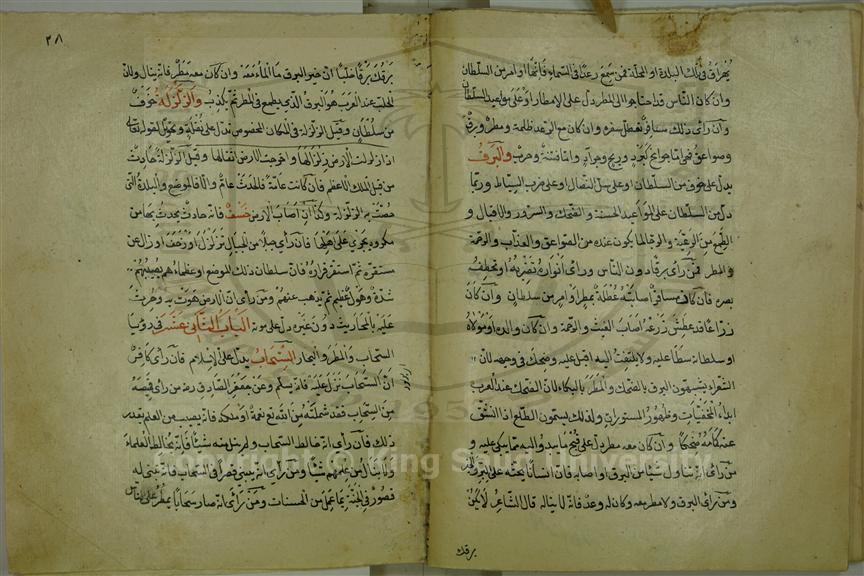 يهراق في تلك البلدة او المحلة فمن سمع رعدا في السماء فانها اوامر من السلطان
وان كان الناس قد احتاجوا الى المطر دل على الامطار او على مواعيد السلطان
وان رأى ذلك مسافر تعطل سفره وان كان مع الرعد ظلمة ومطر وبرق
وصواعق فهي اما جوائح كبرد وريح وجراد واما فتنة وحرب والبرق
يدل على خوف من السلطان او على سل النصال او على ضرب السياط وربما
دل من السلطان على المواعيد الحسنة والضحك والسرور والاقبال و
الطمع من الرغبة والرقة لما يكون عنده من الصواعق والعذاب والرحمة
والمطر فمن رأى برقا دون الناس ورأى انواره تضربه او تخطف
بصره فان كان مسافرا اصابته عطلة بمطر او امر من سلطان وان كان
زراعا قد عطش زرعه اصاب الغيث والرحمة وان كان والده او مولاه
او سلطانه سطا عليه ولا يلتفت اليه اقبل عليه وضحك في وجهه لان
الشعراء يشبهون البرق بالضحك والمطر بالبكاء لان الضحك عند العرب
ابداء المخفيات وظهور المستورات ولذلك يسمون الطلع اذا انشق
عنه كمامه ضحكا وان كان معه مطر دل على قبيح ما يبدو اليه مما يبكي عليه و
من رأى انه تناول شيئا من البرق او اصابه فان انسانا يحثه على البر
ومن رأى البرق ولا مطر معه وكان له وعد فانه لا يناله قال الشاعر لا يكن
برقك
٣٨
برقك برقا خلبا ان خير البرق ما الماء معه وان كان معه مطر فانه ينال ولان
الخلب عند العرب هو البرق الذي يطمع في المطر ثم يكذب والزلزلة خوف
من سلطان وقيل الزلزلة في المكان المخصوص تدل على نقلة وتحويل لقوله تعالى
اذا زلزلت الارض زلزالها واخرجت الارض اثقالها وقيل الزلزلة حادث
من قبل الملك الاعظم فان كانت عامة فالحدث عام والا فالموضع والبلدة التي
خصت به الزلزلة وكذا ان اصاب الارض خسف فانه حادث يحدث بها من
مكروه يجري على اهلها فان رأى جبلا من الجبال تزلزل او زحف او زال عن
مستقره ثم استقر قراره فان سلطان ذلك الموضع او عظماءهم يصيبهم
شدة وهول عظيم ثم يذهب عنهم ومن رأى ان الارض هوت به وحرثت
عليه بالمحاريث دون غيره دل على موته الباب الثاني عشر في رؤيا
السحاب والمطر والبحار السحاب يدل على الاسلام فان رأى كافر
ان السحاب نزل عليه فانه يسلم وعن جعفر الصادق رحمه من رأى قميصه
من السحاب فقد شملته من الله تع نعمة او ملكه فانه يصيب من العلم بقدر
ذلك فان رأى انه خالط السحاب ولم يحمل منه شيئا فانه يخالط العلماء
ولا ينال من علمهم شيئا ومن رأى انه يبني قصرا في السحاب فانه يبنى له
قصور في الجنة بما يعمل من الحسنات ومن رأى انه صار سحابا يمطر على الناس
Copyright © King Saud University
1957